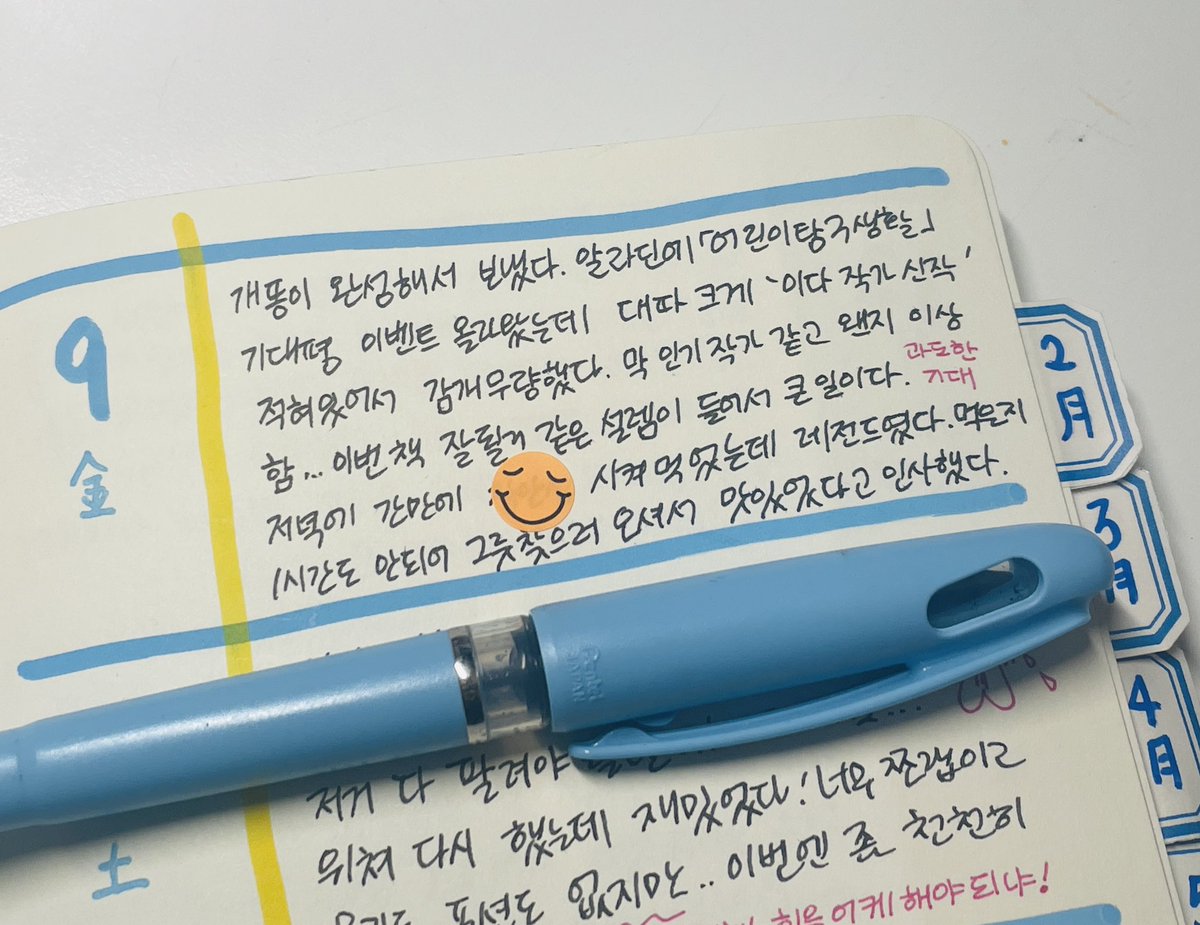 9
金
개똥이 완성해서 보냈다. 알라딘에「어린이탐구생활」
기대평 이벤트 올라왔는데 대따 크게 '이다 작가 신작'
적혀있어서 감개무량했다. 막 인기작가 같고 왠지 이상
함... 이번책 잘될거 같은 설렘이 들어서 큰일이다. 과도한
기대
저녁에 간만에 시켜먹었는데 레전드였다. 먹은지
1시간도 안되어 그릇찾으러 오셔서 맛있었다고 인사했다.
土
저거 다 팔려야
위쳐 다시 했는데 재밌었다! 너무 쪼렙이고
포션도 없지만.. 이번엔 좀 천천히
어케 해야 되냐!
2月
3月
4月